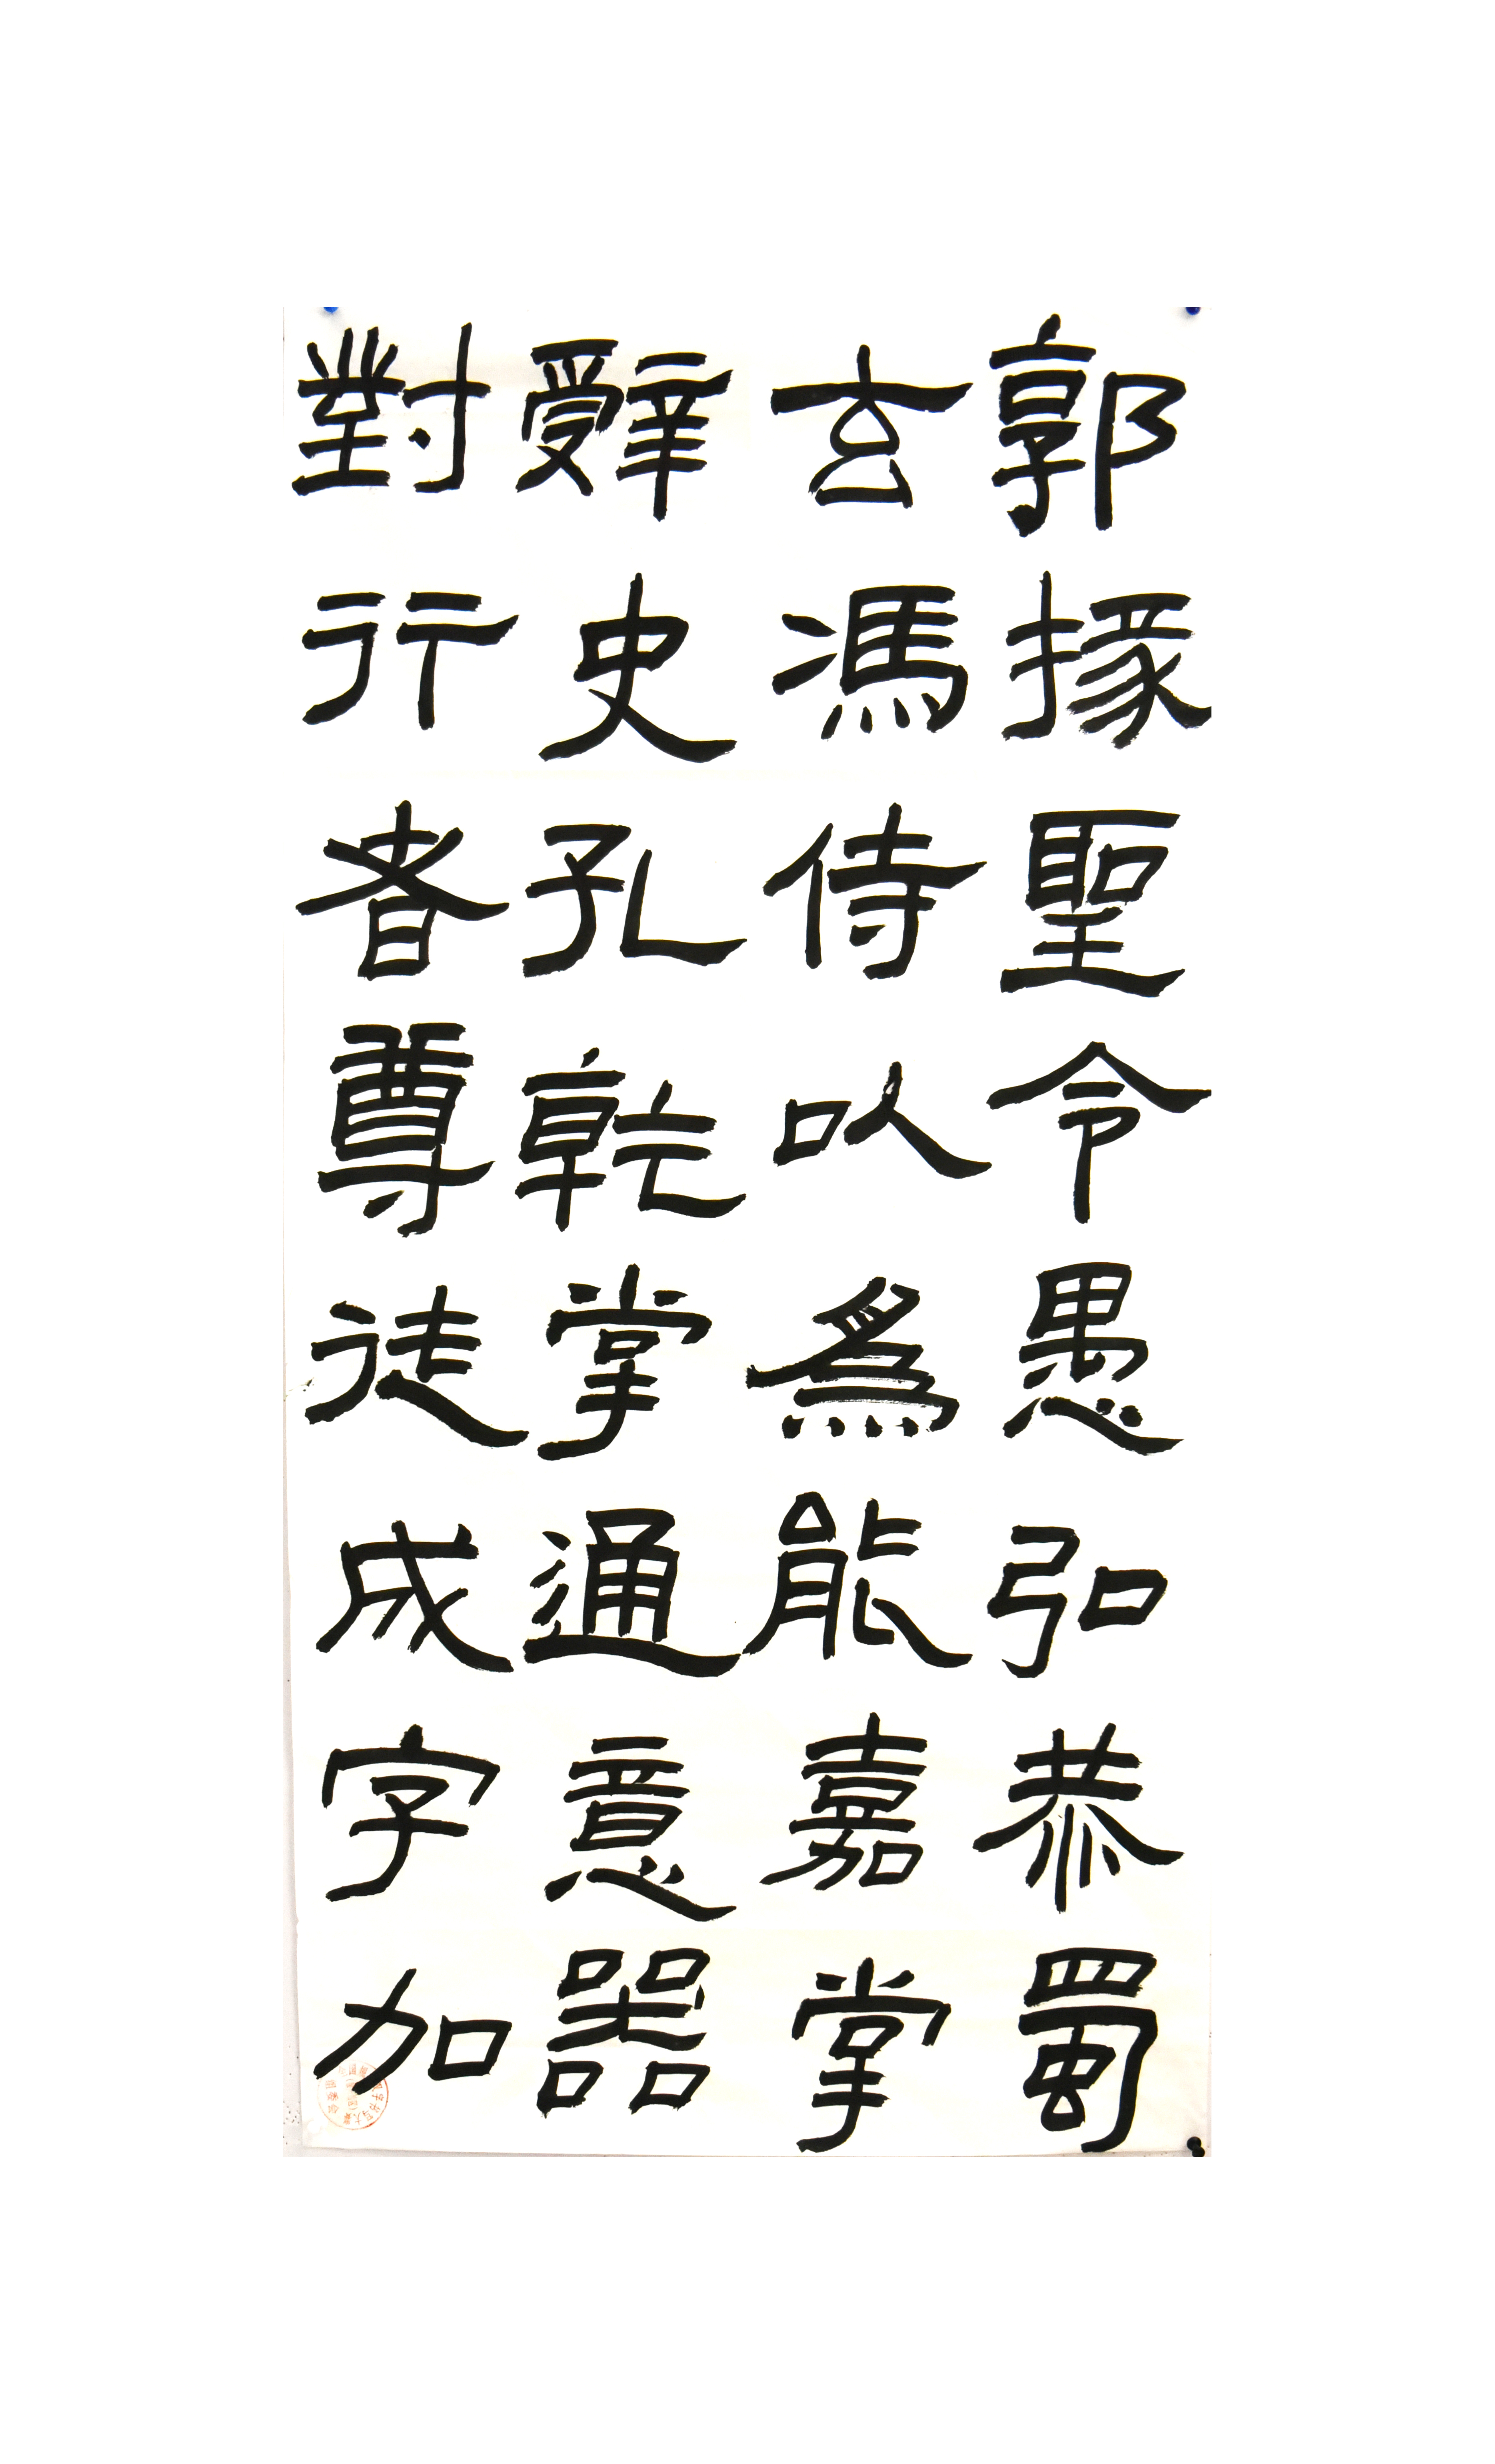 郭掾聖命愚弘恭蜀
玄馮侍以為能嘉掌
辭史孔乾掌通意器
對行者尊徒成字加